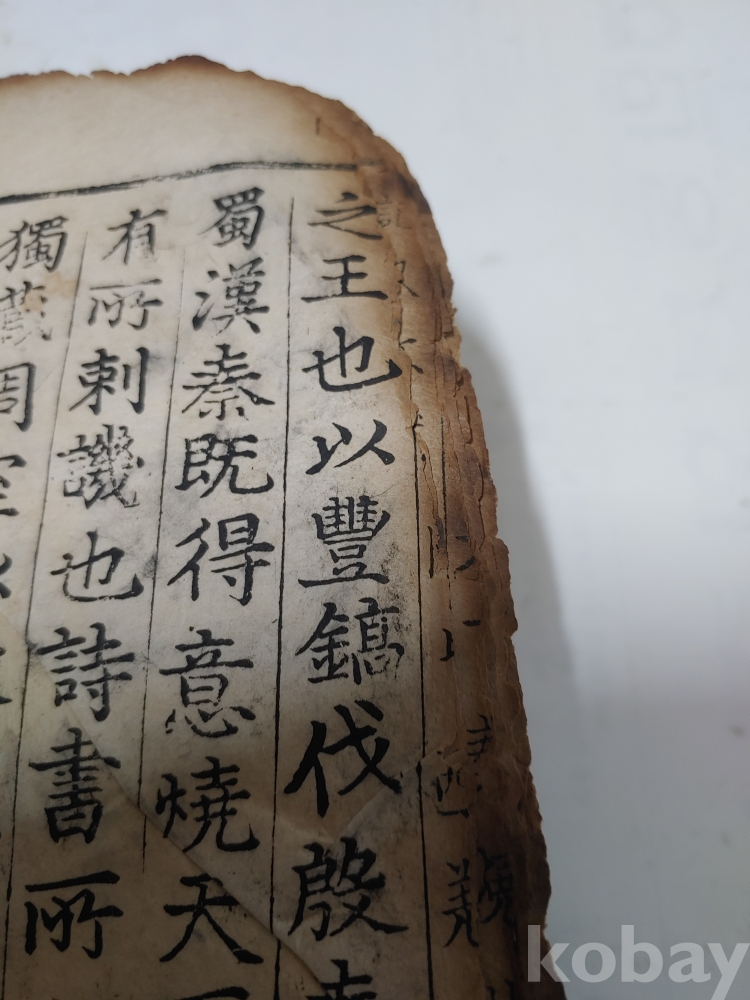 之王也以豐鎬伐殷
蜀漢秦既得意燒天
有所刺譏也詩書所
獨藏周室
kobay